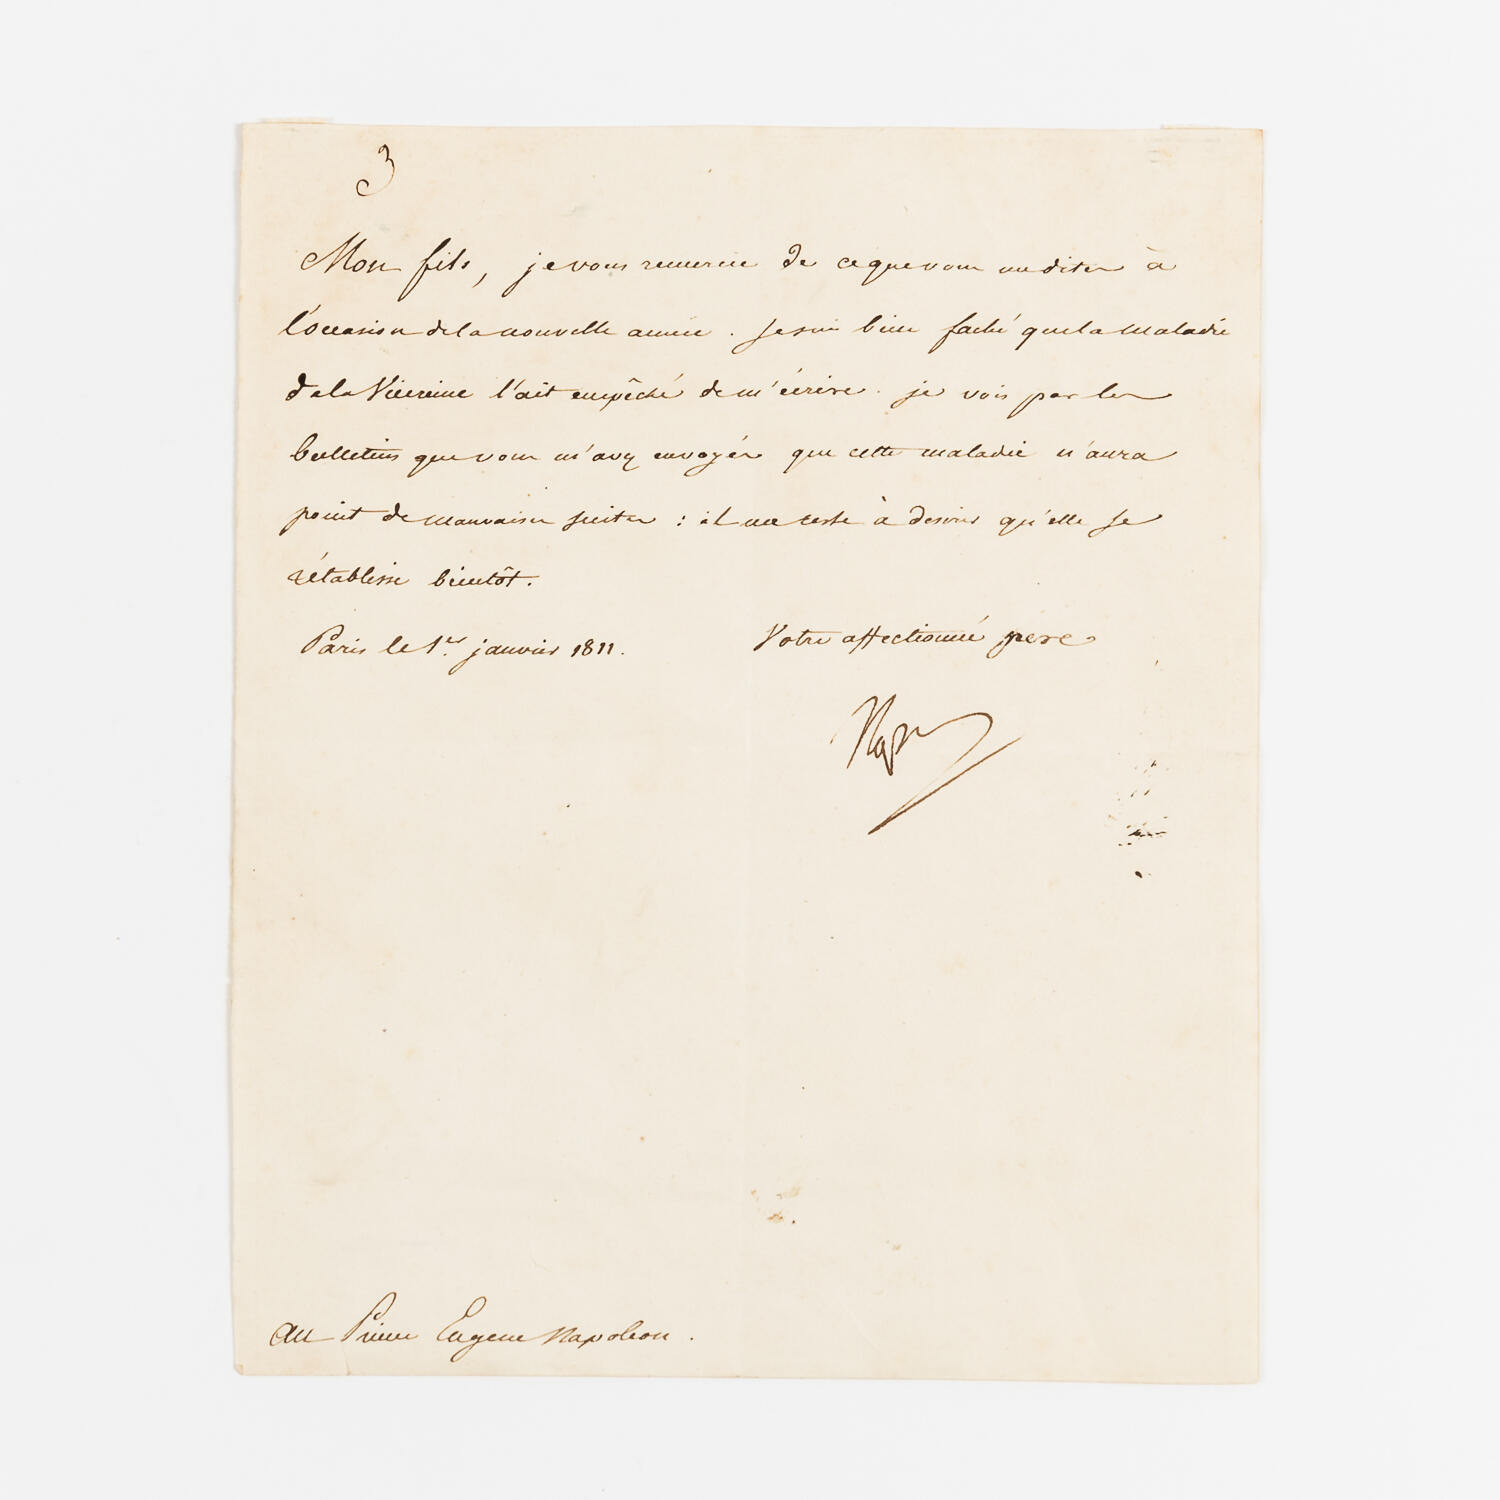 3
Mon fils, je vous remercie de ce que vous me dites à
l'occasion de la nouvelle année. Je suis bien faché que la maladie
de la Vicereine l'ait empêché de m'écrire. je vois par les
bulletins que vous m'avez envoyés que cette maladie n'aura
point de mauvaises suites : il me reste à desirer qu'elle se
rétablisse bientôt.
Paris le 1er janvier 1811.
Votre affectionné pere
Nap
au Prince Eugene Napoleon.